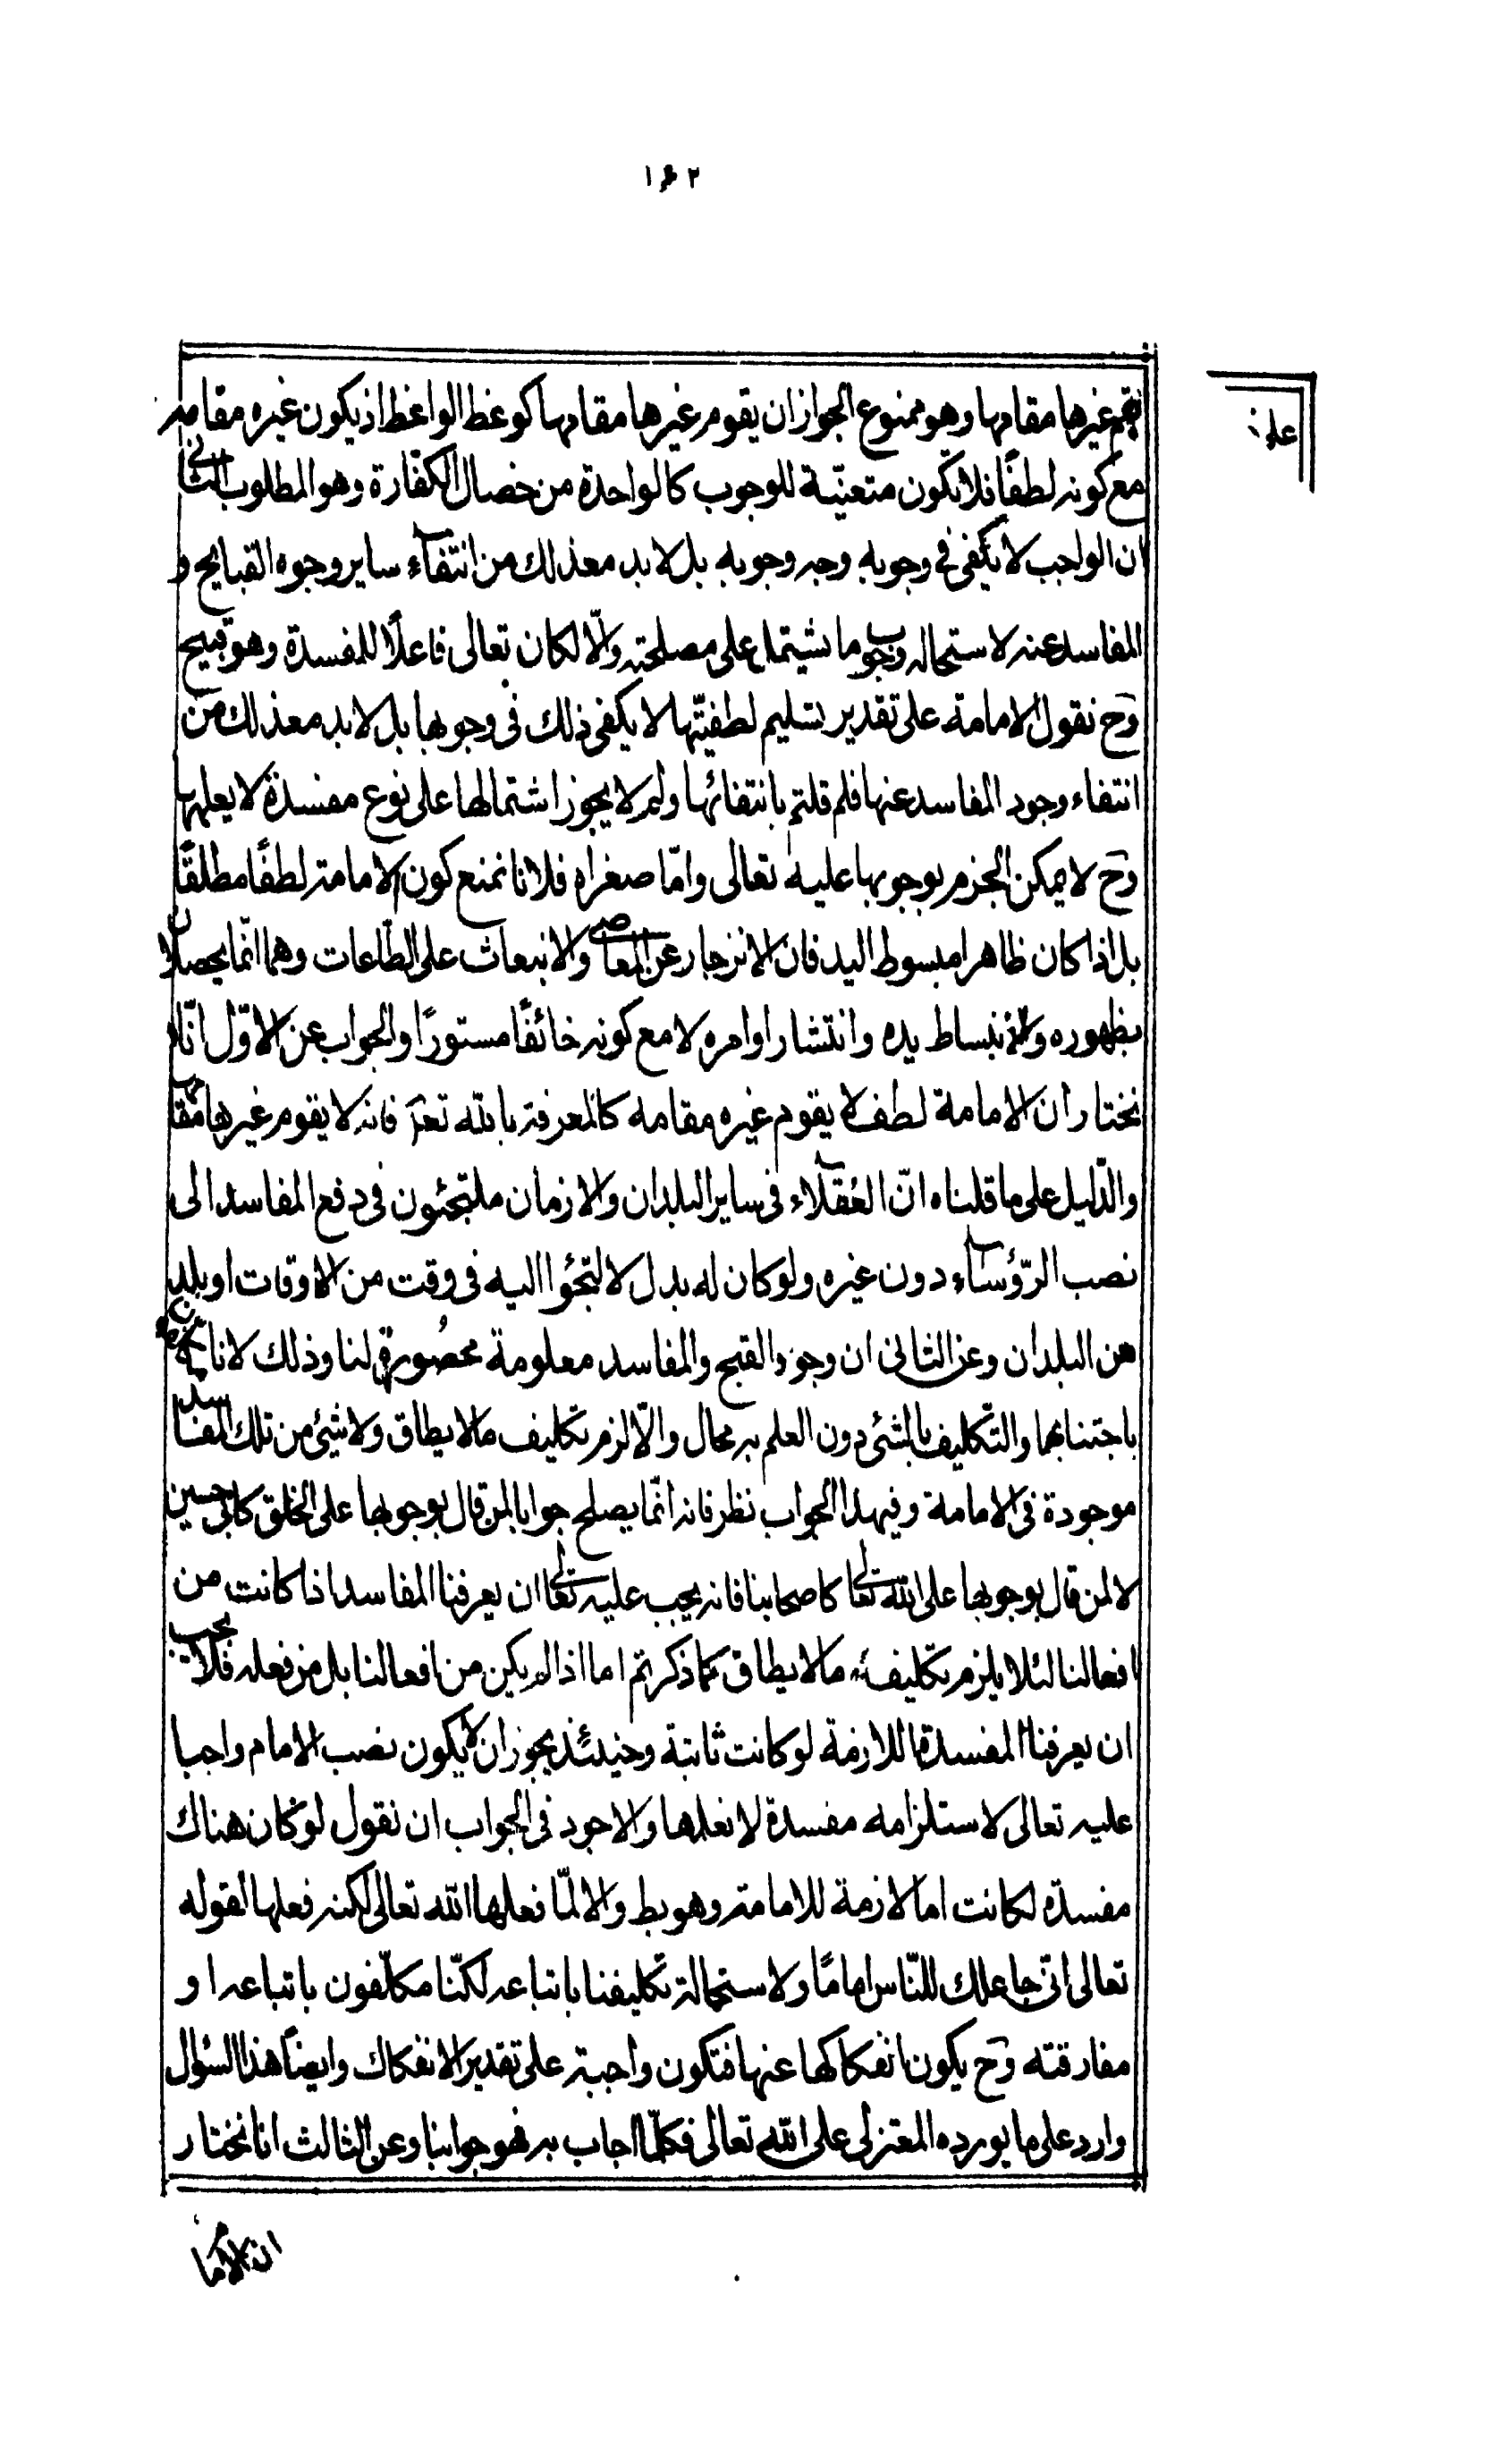 ١٤٢
يقم غيرها مقامها وهو ممنوع الجواز ان يقوم غيرها مقامها كوعظ الواعظ اذ يكون غيره مقامه
مع كونه لطفًا فلا تكون متعيّنة للوجوب كالواحدة من خصال الكفّارة وهو المطلوب الثانى
ان الواجب لا يكفى فى وجوبه وجه وجوبه بل لا بد معذلك من انتفاء ساير وجوه القبايح و
المفاسد عنه لاستحاله وجوب ما يشتمل على مصلحته والّا لكان تعالى فاعلًا للمفسدة وهو قبيح
وح نقول الامامة على تقدير تسليم لطفيّتها لا يكفى ذلك فى وجوبها بل لا بد معذلك من
انتفاء وجود المفاسد عنها فلم قلتم بانتفائها ولم لا يجوز اشتمالها على نوع مفسدة لا يعلمها
وح لا يمكن الجزم بوجوبها عليه تعالى وامّا صغراه فلانا نمنع كون الامامة لطفًا مطلقًا
بل اذا كان ظاهرا مبسوط اليد فان الانزجار عن المعاصى والانبعاث على الطّاعات وهما انّما يحصلان
بظهوره والانبساط يده وانتشار اوامره لا مع كونه خائفًا مستورًا والجواب عن الاوّل انّا
نختار ان الامامة لطف لا يقوم غيره مقامه كالمعرفة بالله تعالى فانه لا يقوم غيرها مقامها
والدّليل على ما قلناه انّ العقلاء فى ساير البلدان والازمان ملتجئون فى دفع المفاسد الى
نصب الرّؤساء دون غيره ولو كان له بدل لالتجئوا اليه فى وقت من الاوقات او بلد
من البلدان وعن الثانى ان وجوه القبح والمفاسد معلومة محصُورة لنا وذلك لانا مكلّفون
باجتنابها والتّكليف بالشئ دون العلم به محال والّا لزم تكليف ما لا يطاق ولا شئ من تلك المفاسد
موجودة فى الامامة وفى هذا الجواب نظر فانه انّما يصلح جوابا لمن قال بوجوبها على الخلق كابى حسين
لا لمن قال بوجوبها على الله تعالى كاصحابنا فانه يجب عليه تعالى ان يعرفنا المفاسد اذا كانت من
افعالنا لئلا يلزم تكليف ما لا يطاق كما ذكرتم اما اذا لم يكن من افعالنا بل من فعله فلا يجب
ان يعرفنا المفسدة اللازمة لو كانت ثابتة وحينئذ يجوز ان لا يكون نصب الامام واجبا
عليه تعالى لاستلزامه مفسدة لا نعلمها والاجود فى الجواب ان نقول لو كان هناك
مفسدة لكانت اما لازمة للامامة وهو بط والا لمّا فعلها الله تعالى لكنه فعلها لقوله
تعالى انّى جاعلك للنّاس امامًا ولاستحالة تكليفنا باتباعه لكنّا مكلّفون باتباعه او
مفارقته وح يكون انفكاكها عنها فتكون واجبة على تقدير الانفكاك وايضًا هذا السؤال
وارد على ما يورده المعتزلى على الله تعالى فكلّما اجاب به فهو جوابنا وعن الثالث انا نختار